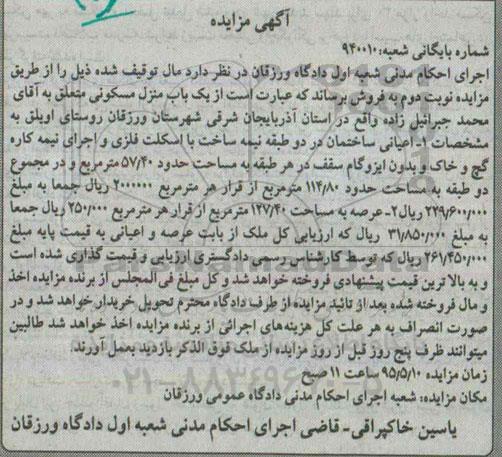 آگهی مزایده
شماره بایگانی شعبه: ۹۴۰۰۱۰
اجرای احکام مدنی شعبه اول دادگاه ورزقان در نظر دارد مال توقیف شده ذیل را از طریق
مزایده نوبت دوم به فروش برساند که عبارت است از یک باب منزل مسکونی متعلق به آقای
محمد جبرائیل زاده واقع در استان آذربایجان شرقی شهرستان ورزقان روستای اویلق به
مشخصات ۱- اعیانی ساختمان در دو طبقه نیمه ساخت با اسکلت فلزی و اجرای نیمه کاره
گچ و خاک و بدون ایزوگام سقف در هر طبقه به مساحت حدود ۵۷/۴۰ مترمربع و در مجموع
دو طبقه به مساحت حدود ۱۱۴/۸۰ مترمربع از قرار هر مترمربع ۲۰۰۰۰۰۰ ریال جمعا به مبلغ
۲۲۹/۶۰۰/۰۰۰ ریال ۲- عرصه به مساحت ۱۲۷/۴۰ مترمربع از قرار هر مترمربع ۲۵۰/۰۰۰ ریال جمعا
به مبلغ ۳۱/۸۵۰/۰۰۰ ریال که ارزیابی کل ملک از بابت عرصه و اعیانی به قیمت پایه مبلغ
۲۶۱/۴۵۰/۰۰۰ ریال که توسط کارشناس رسمی دادگستری ارزیابی و قیمت گذاری شده است
و به بالا ترین قیمت پیشنهادی فروخته خواهد شد و کل مبلغ فی المجلس از برنده مزایده اخذ
و مال فروخته شده بعد از تائید مزایده از طرف دادگاه محترم تحویل خریدار خواهد شد و در
صورت انصراف به هر علت کل هزینه‌های اجرائی از برنده مزایده اخذ خواهد شد طالبین
میتوانند ظرف پنج روز قبل از روز مزایده از ملک فوق الذکر بازدید بعمل آورند.
زمان مزایده ۹۵/۵/۱۰ ساعت ۱۱ صبح
مکان مزایده: شعبه اجرای احکام مدنی دادگاه عمومی ورزقان
یاسین خاکپراقی- قاضی اجرای احکام مدنی شعبه اول دادگاه ورزقان